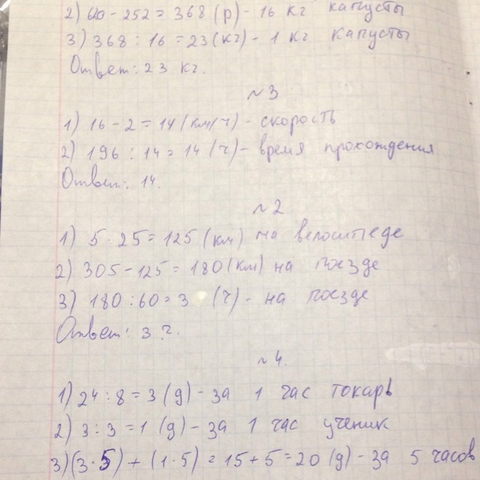 2) 620 - 252 = 368 (р) - 16 кг капусты
3) 368 : 16 = 23 (кг) - 1 кг капусты
Ответ: 23 кг.
~ 3
1) 16 - 2 = 14 (км/ч) - скорость
2) 196 : 14 = 14 (ч) - время прохождения
Ответ: 14.
~ 2
1) 5 · 25 = 125 (км) на велосипеде
2) 305 - 125 = 180 (км) на поезде
3) 180 : 60 = 3 (ч) - на поезде
Ответ: 3 ч.
~ 4.
1) 24 : 8 = 3 (д) - за 1 час токарь
2) 3 : 3 = 1 (д) - за 1 час ученик
3) (3 · 5) + (1 · 5) = 15 + 5 = 20 (д) - за 5 часов